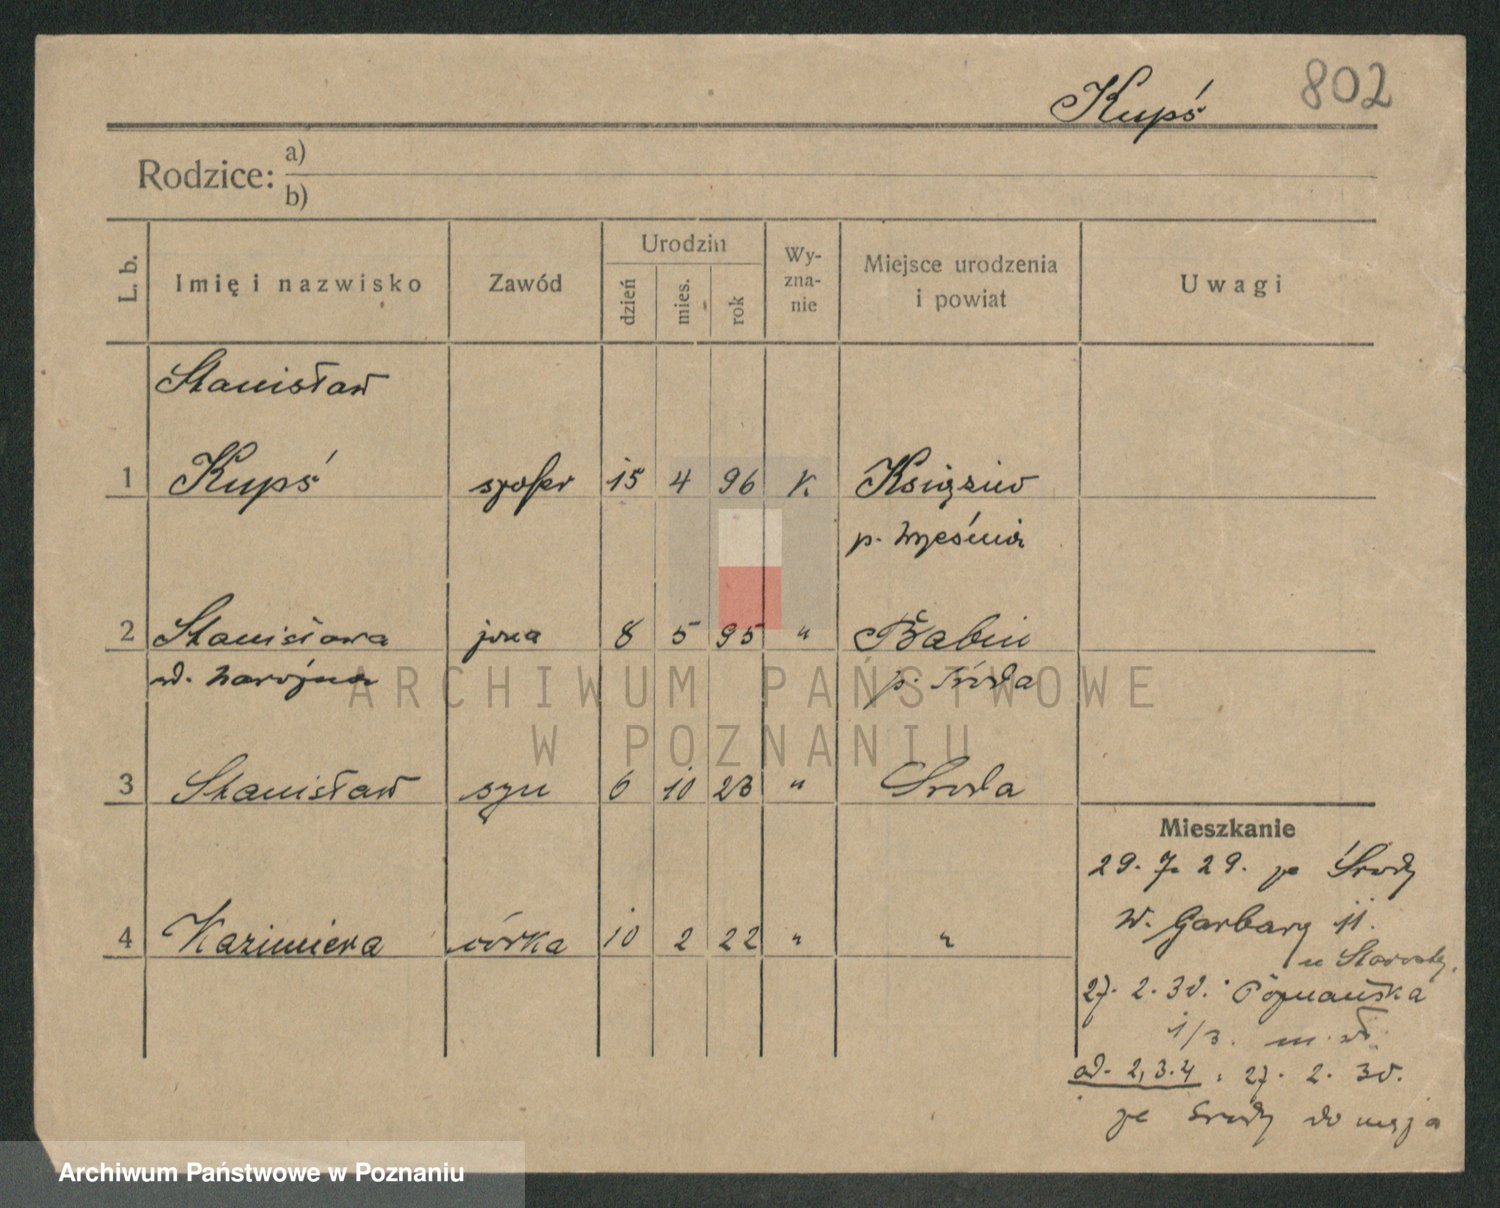 802
Kupś
Rodzice: a)
b)
L. b.
Imię i nazwisko
Zawód
Urodzin
dzień
mies.
rok
Wy-
zna-
nie
Miejsce urodzenia
i powiat
Uwagi
Stanisław
1 Kupś szofer 15 4 96 K
p. Września
2 Stanisława żona 8 5 95 " Babin
p. Środa
3 Stanisław syn 6 10 23 " Środa
4 Kazimiera córka 10 2 22 " "
Mieszkanie
29. 7. 29. ze Środy
W. Garbary 11.
27. 2. 30. Poznańska
1/3.
ad. 2, 3. 4. 27. 2. 30.
ze Środy do męża
ARCHIWUM PAŃSTWOWE
W POZNANIU
Archiwum Państwowe w Poznaniu